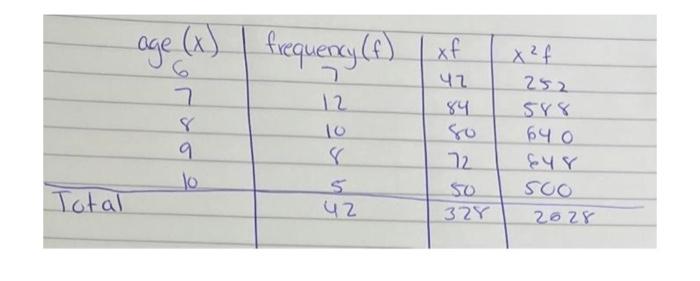 age (x) frequency (f) xf x²f
6 7 42 252
7 12 84 588
8 10 80 640
9 8 72 648
10 5 50 500
Total 42 328 2628